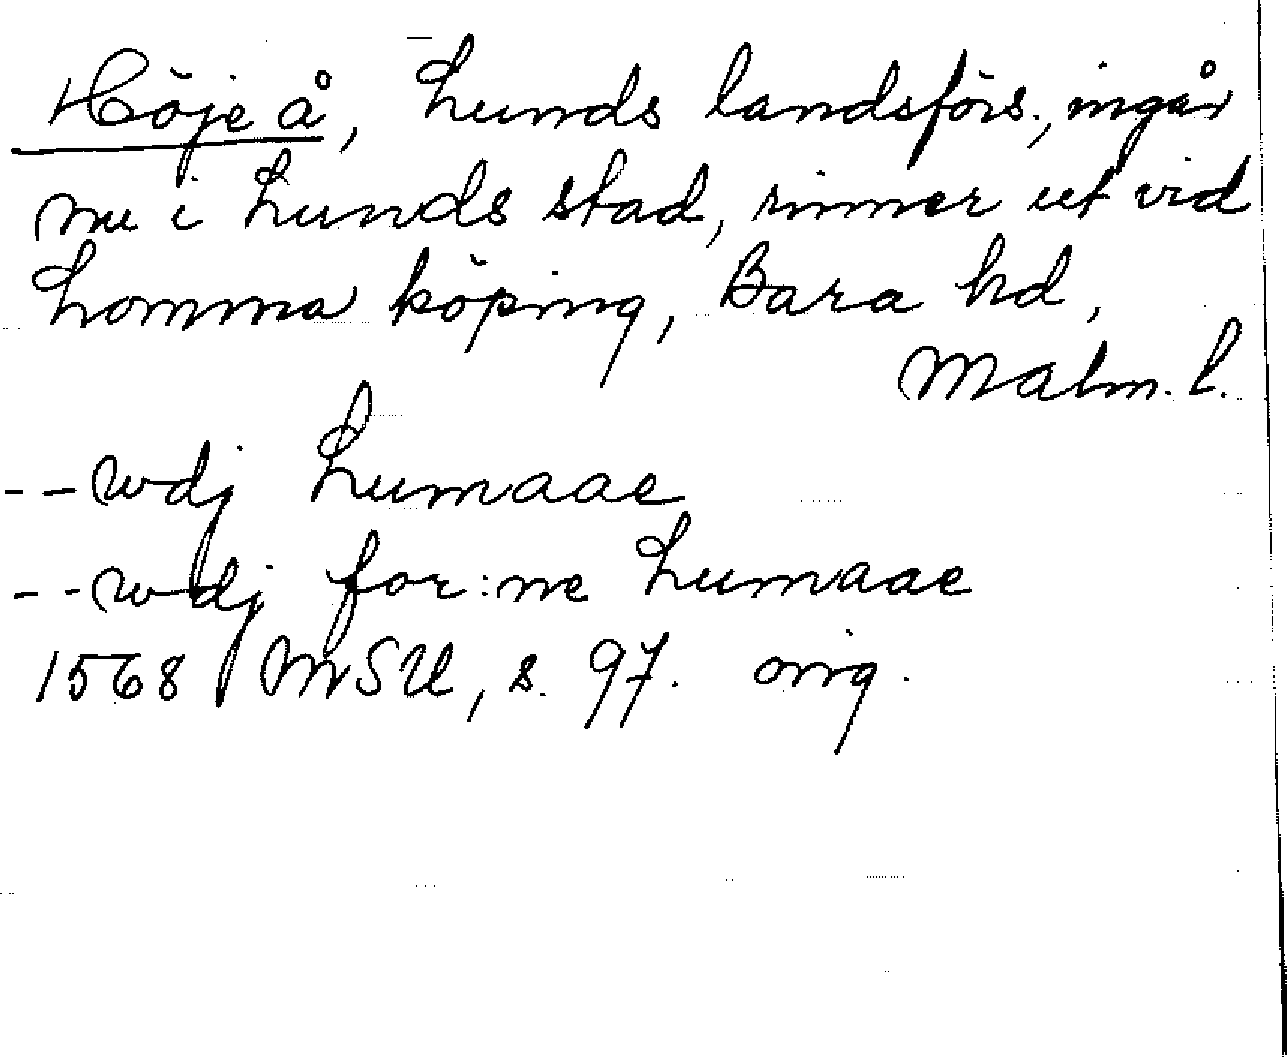 Höje å, Lunds landsförs., ingår
nu i Lunds stad, rinner ut vid
Lomma köping, Bara hd,
Malm. l.
-- wdj Lumaae
-- wdj for:ne Lumaae
1568 MSU, s. 97. orig.